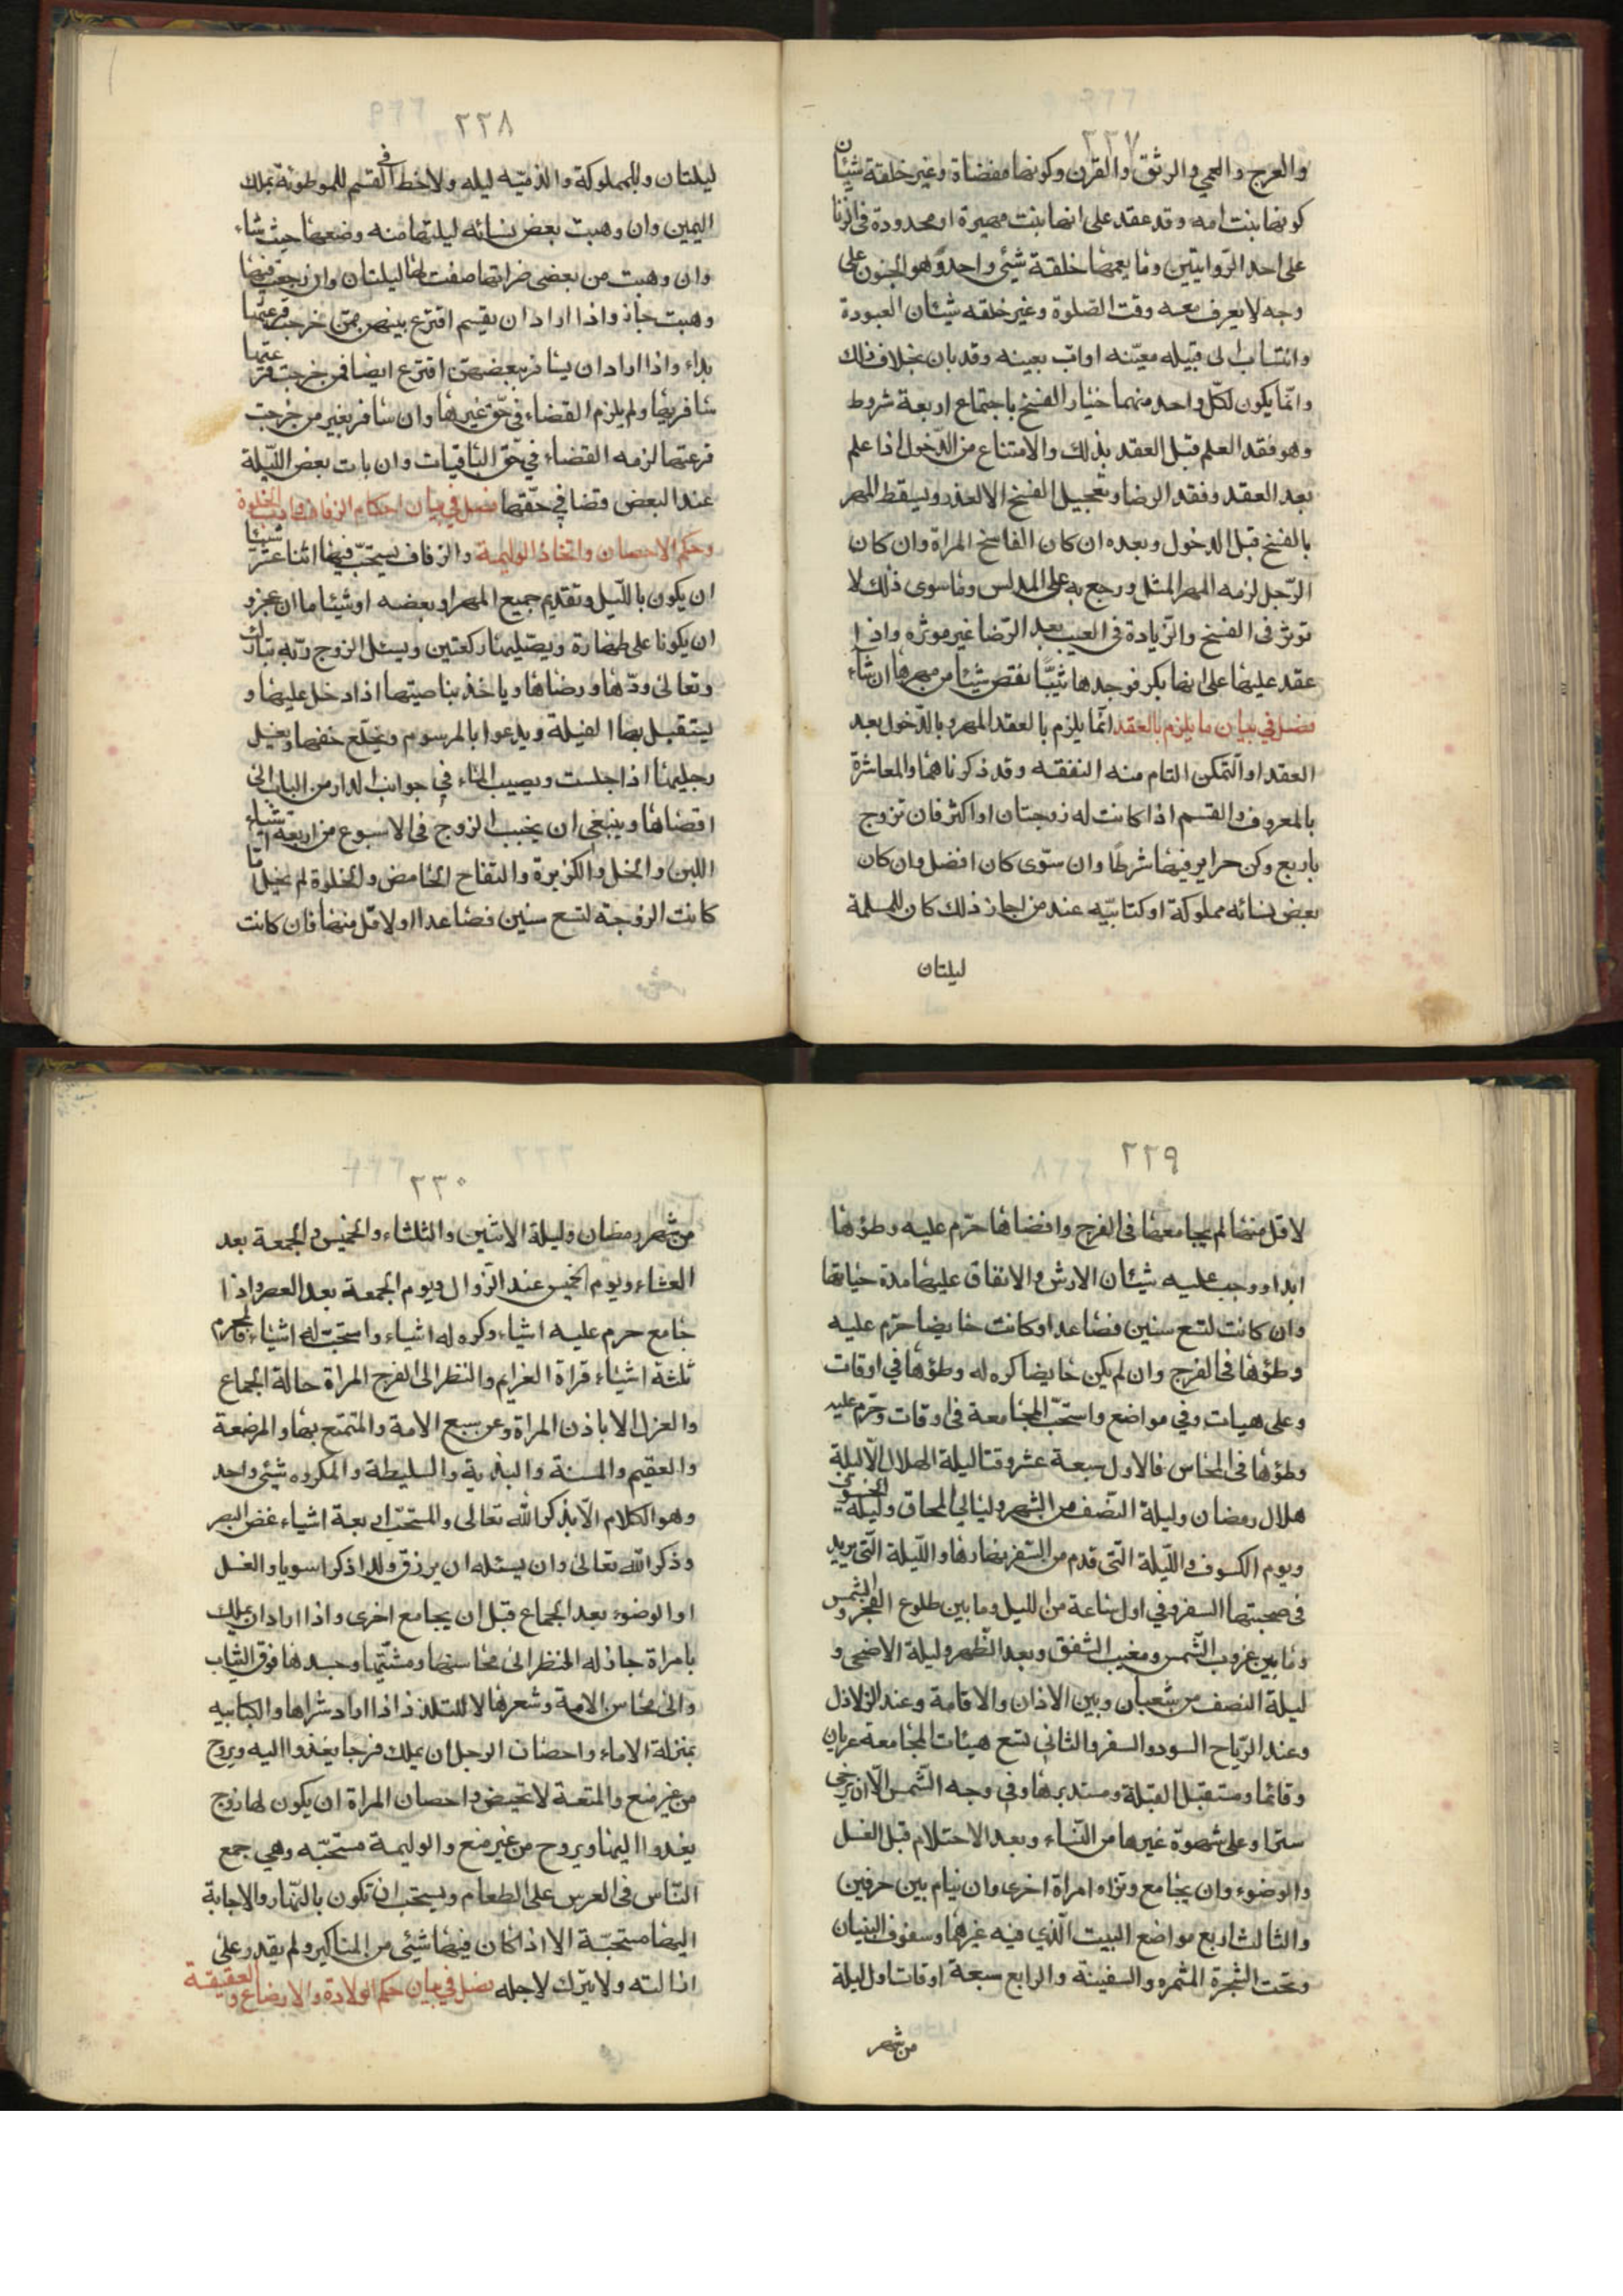 ٢٢٧
والعرج والعمي والرثق والقرن وكونها مفضاة وغير خلقة شيئان
كونها بنت امه وقد عقد على انها بنت مهيرة او محدودة في الزنا
على احد الروايتين وما يعمها خلقة شيئ واحد وهو الجنون على
وجه لا يعرف معه وقت الصلوة وغير خلقه شيئان العبودة
وانتساب الى قبيله معيّنه او اب بعينه وقد بان بخلاف ذلك
وانّما يكون لكلّ واحد منهما خيار الفسخ باجتماع اربعة شروط
وهو فقد العلم قبل العقد بذلك والامتناع من الدّخول اذا علم
بعد العقد وفقد الرضا وتعجيل الفسخ الا لعذر ويسقط المهر
بالفسخ قبل الدخول وبعده ان كان الفاسخ المراة وان كان
الرّجل لزمه المهر المثل ورجع به على المدلس وما سوى ذلك لا
توثر فى الفسخ والزّيادة فى العيب بعد الرّضا غير موثره واذا
عقد عليها على انها بكر فوجدها ثيّبًا نقص شيئا من مهرها ان شاء
فصل في بيان ما يلزم بالعقد انّما يلزم بالعقد المهر وبالدّخول بعد
العقد او التّمكن التام منه النفقه وقد ذكرناهما والمعاشرة
بالمعروف والقسم اذا كانت له زوجتان او اكثر فان تزوج
باربع وكن حراير فيها شرطًا وان سوّى كان افضل وان كان
بعض نسائه مملوكة او كتابيّه عند من اجاز ذلك كان للمسلمة
ليلتان
٢٢٨
ليلتان وللمملوكة والذميّه ليله ولا خط فى القسم للموطوئة بملك
اليمين وان وهبت بعض نسائه ليلتها منه وضعها حيث شاء
وان وهبت من بعضى ضراتها صفت لها ليلتان وان رجعت فيما
وهبت جاز واذا اراد ان يقسم اقترع بينهن فمن خرجت قرعتها
بداء واذا اراد ان يسافر ببعضهن اقترع ايضا فمن خرجت قرعتها
سافر بها ولم يلزم القضاء في حّق غيرها وان سافر بغير من خرجت
قرعتها لزمه القضاء في حّق الباقيات وان بات بعض اللّيلة
عند البعض قضا في حقها فصل في بيان احكام الزفاف واداب الخلوة
وحكم الاحصان واتخاذ الوليمة والزفاف يستحبّ فيها اثنا عشر شيئا
ان يكون باللّيل وتقديم جميع المهر او بعضه او شيئا ما ان عجز و
ان يكونا على طهارة ويصليا ركعتين ويسئل الزوج ربّه تبارك
وتعالى ودّها ورضاها وياخذ بناصيتها اذا دخل عليها و
يستقبل بها القبلة ويدعوا بالمرسوم ويخلع خفها ويغسل
رجليها اذا جلست ويصيب الماء في جوانب الدار من الباب الى
اقصاها وينبغي ان يجنب الزوج فى الاسبوع من اربعة اشياء
اللبن والخل والكزبرة والتفاح الحامض والخلوة لم يخل امّا
كانت الزوجة لتسع سنين فصاعدا او لاقلّ منها فان كانت
٢٢٩
لاقل منها لم يجامعها فى الفرج وافضاها حرّم عليه وطؤها
ابدا ووجب عليه شيئان الارش والانفاق عليها مدة حياتها
وان كانت لتسع سنين فصاعدا وكانت حايضا حرّم عليه
وطؤها فى الفرج وان لم يكن حايضا كره له وطؤها في اوقات
وعلى هيات وفي مواضع واستحّب المجامعة فى اوقات وحرم عليه
وطؤها فى المحاس فالاول سبعة عشر وقتا ليلة الهلال الّا ليلة
هلال رمضان وليلة النّصف من الشهر وليالي المحاق وليلة الخسوف
ويوم الكسوف واللّيلة الّتى قدم من السّفر نهارها واللّيلة الّتى يريد
فى صحبتها السفر وفي اول ساعة من الليل وما بين طلوع الفجر والشمس
وما بين غروب الشّمس ومغيب الشفق وبعد الظّهر وليلة الاضحى و
ليلة النصف من شعبان وبين الاذان والاقامة وعند الزلازل
وعند الرّياح السود والسفر والثانى تسع هيئات المجامعة عريان
وقائما ومستقبل القبلة ومستدبرها وفي وجه الشّمس الّا ان يرخى
سترا وعلى شهوة غيرها من النّساء وبعد الاحتلام قبل الغسل
والوضوء وان يجامع وتراه امراة اخرى وان ينام بين حرفين
والثالث اربع مواضع البيت الّذي فيه غيرهما وسقوف البنيان
وتحت الشجرة المثمره والسفينة والرابع سبعة اوقات اول ليلة
من شهر
٢٣٠
من شهر رمضان وليلة الاثنين والثلثاء والخميس والجمعة بعد
العشاء ويوم الخميس عند الزّوال ويوم الجمعة بعد العصر واذا
جامع حرم عليه اشياء وكره له اشياء واستحبّ له اشياء فالمحرم
ثلثة اشياء قراة العزايم والنظر الى الفرج المراة حالة الجماع
والعزل الا باذن المراة وعن سبع الامة والمتمتع بها والمرضعة
والعقيم والمسنة والبذية والسليطة والمكروه شيئ واحد
وهو الكلام الّا بذكر الله تعالى والمستحب اربعة اشياء غض البصر
وذكر الله تعالى وان يسئله ان يرزق ولدا ذكرا سويا والغسل
او الوضوء بعد الجماع قبل ان يجامع اخرى واذا اراد ان يملك
بامراة جاز له النظر الى محاسنها ومشّيتها وجسدها فوق الثياب
والى محاس الامة وشعرها لا للتلذذ اذا اراد شراها والكتابيه
بمنزلة الاماء واحصان الرجل ان يملك فرجا يغذوا اليه ويروح
من غير منع والمتعة لا تحيض واحصان المراة ان يكون لها زوج
يغدوا اليها ويروح من غير منع والوليمة مستحبّه وهي جمع
النّاس فى العرس على الطعام ويستحب ان تكون بالنّهار والاجابة
اليها مستحبّة الا اذا كان فيها شيئى من المناكير ولم يقدر على
ازالته ولا يترك لاجله فصل في بيان حكم الولادة والارضاع والعقيقة